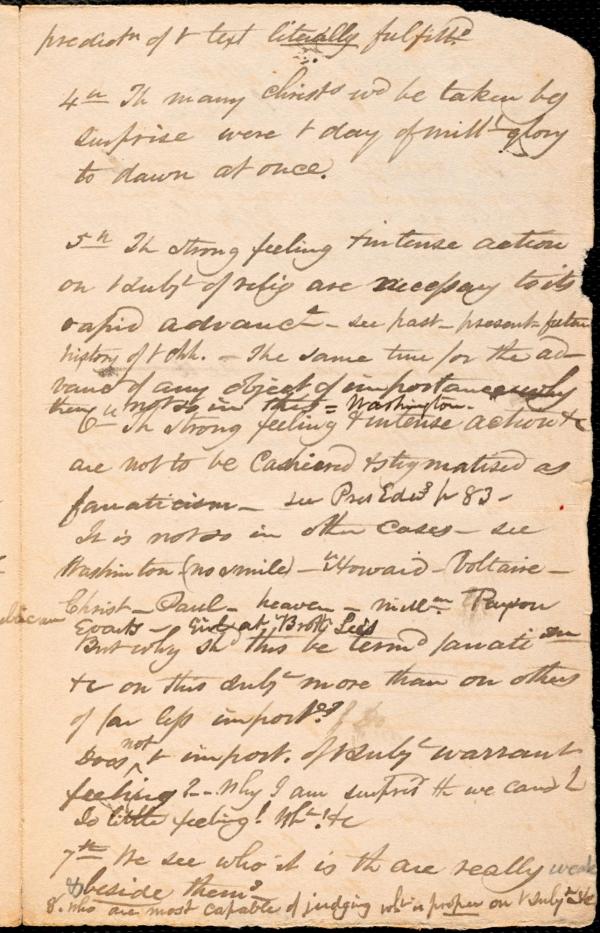 predictn of t text literally fulfilld
4th Th many Christs wd be taken by
surprise were t day of milll glory
to dawn at once.
5th Th strong feeling & intense action
on t subjt of relig are necessary to its
rapid advanct - see past - present - future
history of t chh. - The same true for the ad-
vanct of any object of importance why
then is it not so in this = Washington.
6th Th strong feeling & intense action &c
are not to be cashiered & stygmatised as
fanaticism - see Pres Edwds p 83 -
It is not so in other cases - see
Washington (no smile) - Howard - Voltaire -
Christ - Paul - heaven - millm Payson
Evarts - at Broth Lee's
But why shd this be termd fanaticism
&c on this subjt more than on others
of far less import?
Does not t import. of t subjt warrant
feeling? - Why I am surprisd th we cand
so little feeling! Wht! &c
7th We see who it is th are really weak
& beside thems
8. who are most capable of judging wht is proper on t subjt &c